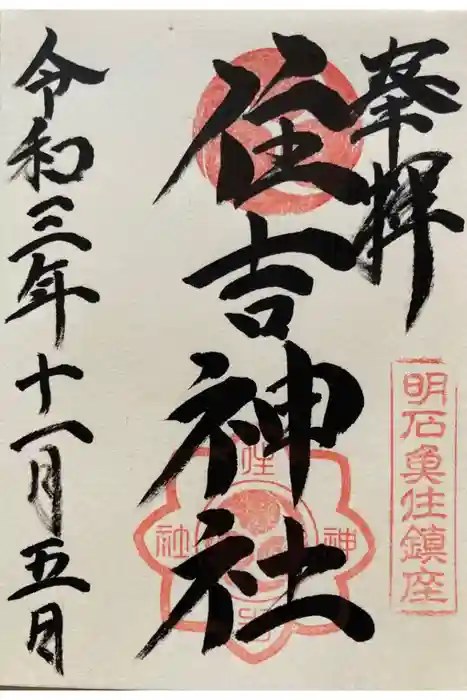 奉拝
住吉神社
明石魚住鎮座
令和三年十一月五日